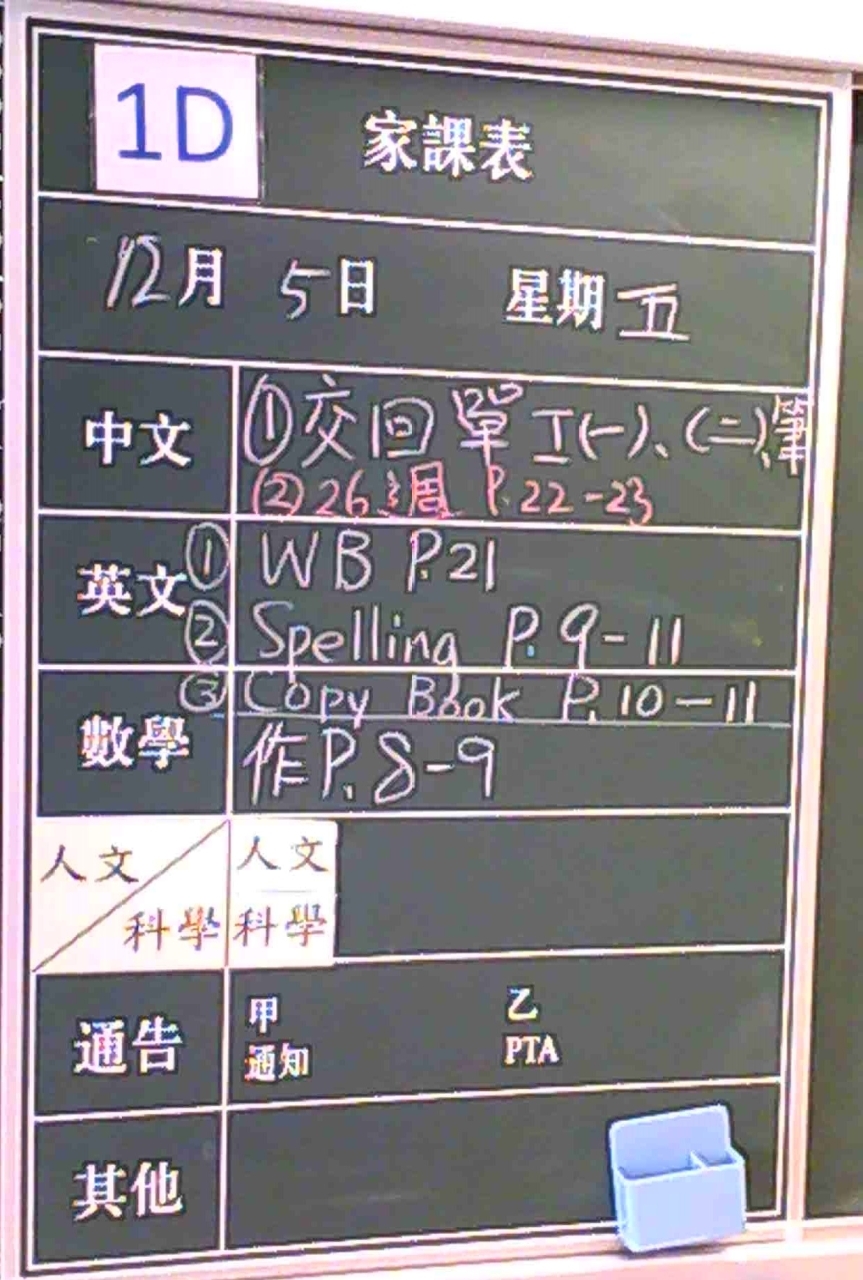 1D
家課表
12月 5日 星期五
中文
①交回單工(一)、(二)、筆
②26週 P.22-23
英文
① WB P.21
② Spelling P.9-11
③ Copy Book P.10-11
數學
作P.8-9
人文
科學
人文
科學
通告
甲 乙
通知 PTA
其他